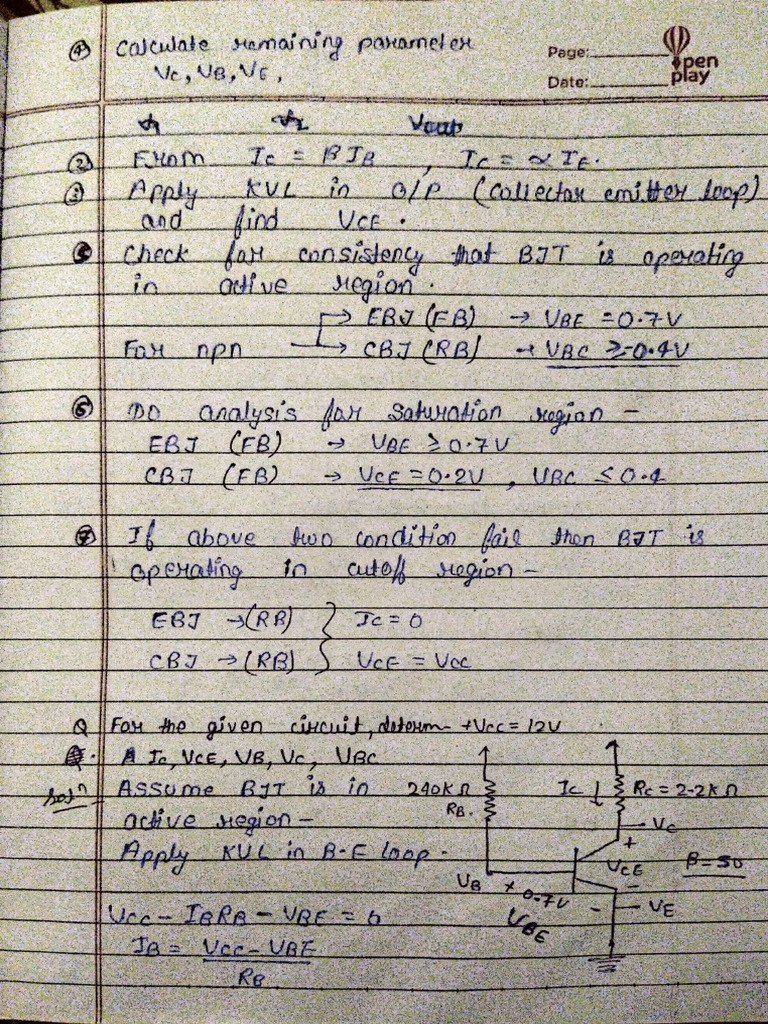 ④ Calculate remaining parameter
Page:
Date:
Open play
VC, VB, VE,
② From IC = βIB , IC = ∝ IE.
③ Apply KVL in O/P (collector emitter loop)
and find VCE.
Check for consistency that BJT is operating
in active region.
→ EBJ (FB) → VBE = 0.7V
For npn → CBJ (RB) → VBC ≥ -0.4V
⑥ Do analysis for saturation region -
EBJ (FB) → VBE ≥ 0.7V
CBJ (FB) → VCE = 0.2V , VBC ≤ 0.4
⑦ If above two condition fail then BJT is
operating in cutoff region -
EBJ → (RB) } IC = 0
CBJ → (RB) } VCE = VCC
Q For the given circuit, determ- +VCC = 12V
IC, VCE, VB, VC, VBC
Soln Assume BJT is in
active region -
Apply KVL in B-E loop.
VCC - IBRB - VBE = 0
IB = VCC - VBE
RB
240KΩ
RB.
IC ↓
RC = 2.2KΩ
VC
+
VCE
-
β = 50
VB
+ 0.7V -
VBE
VE